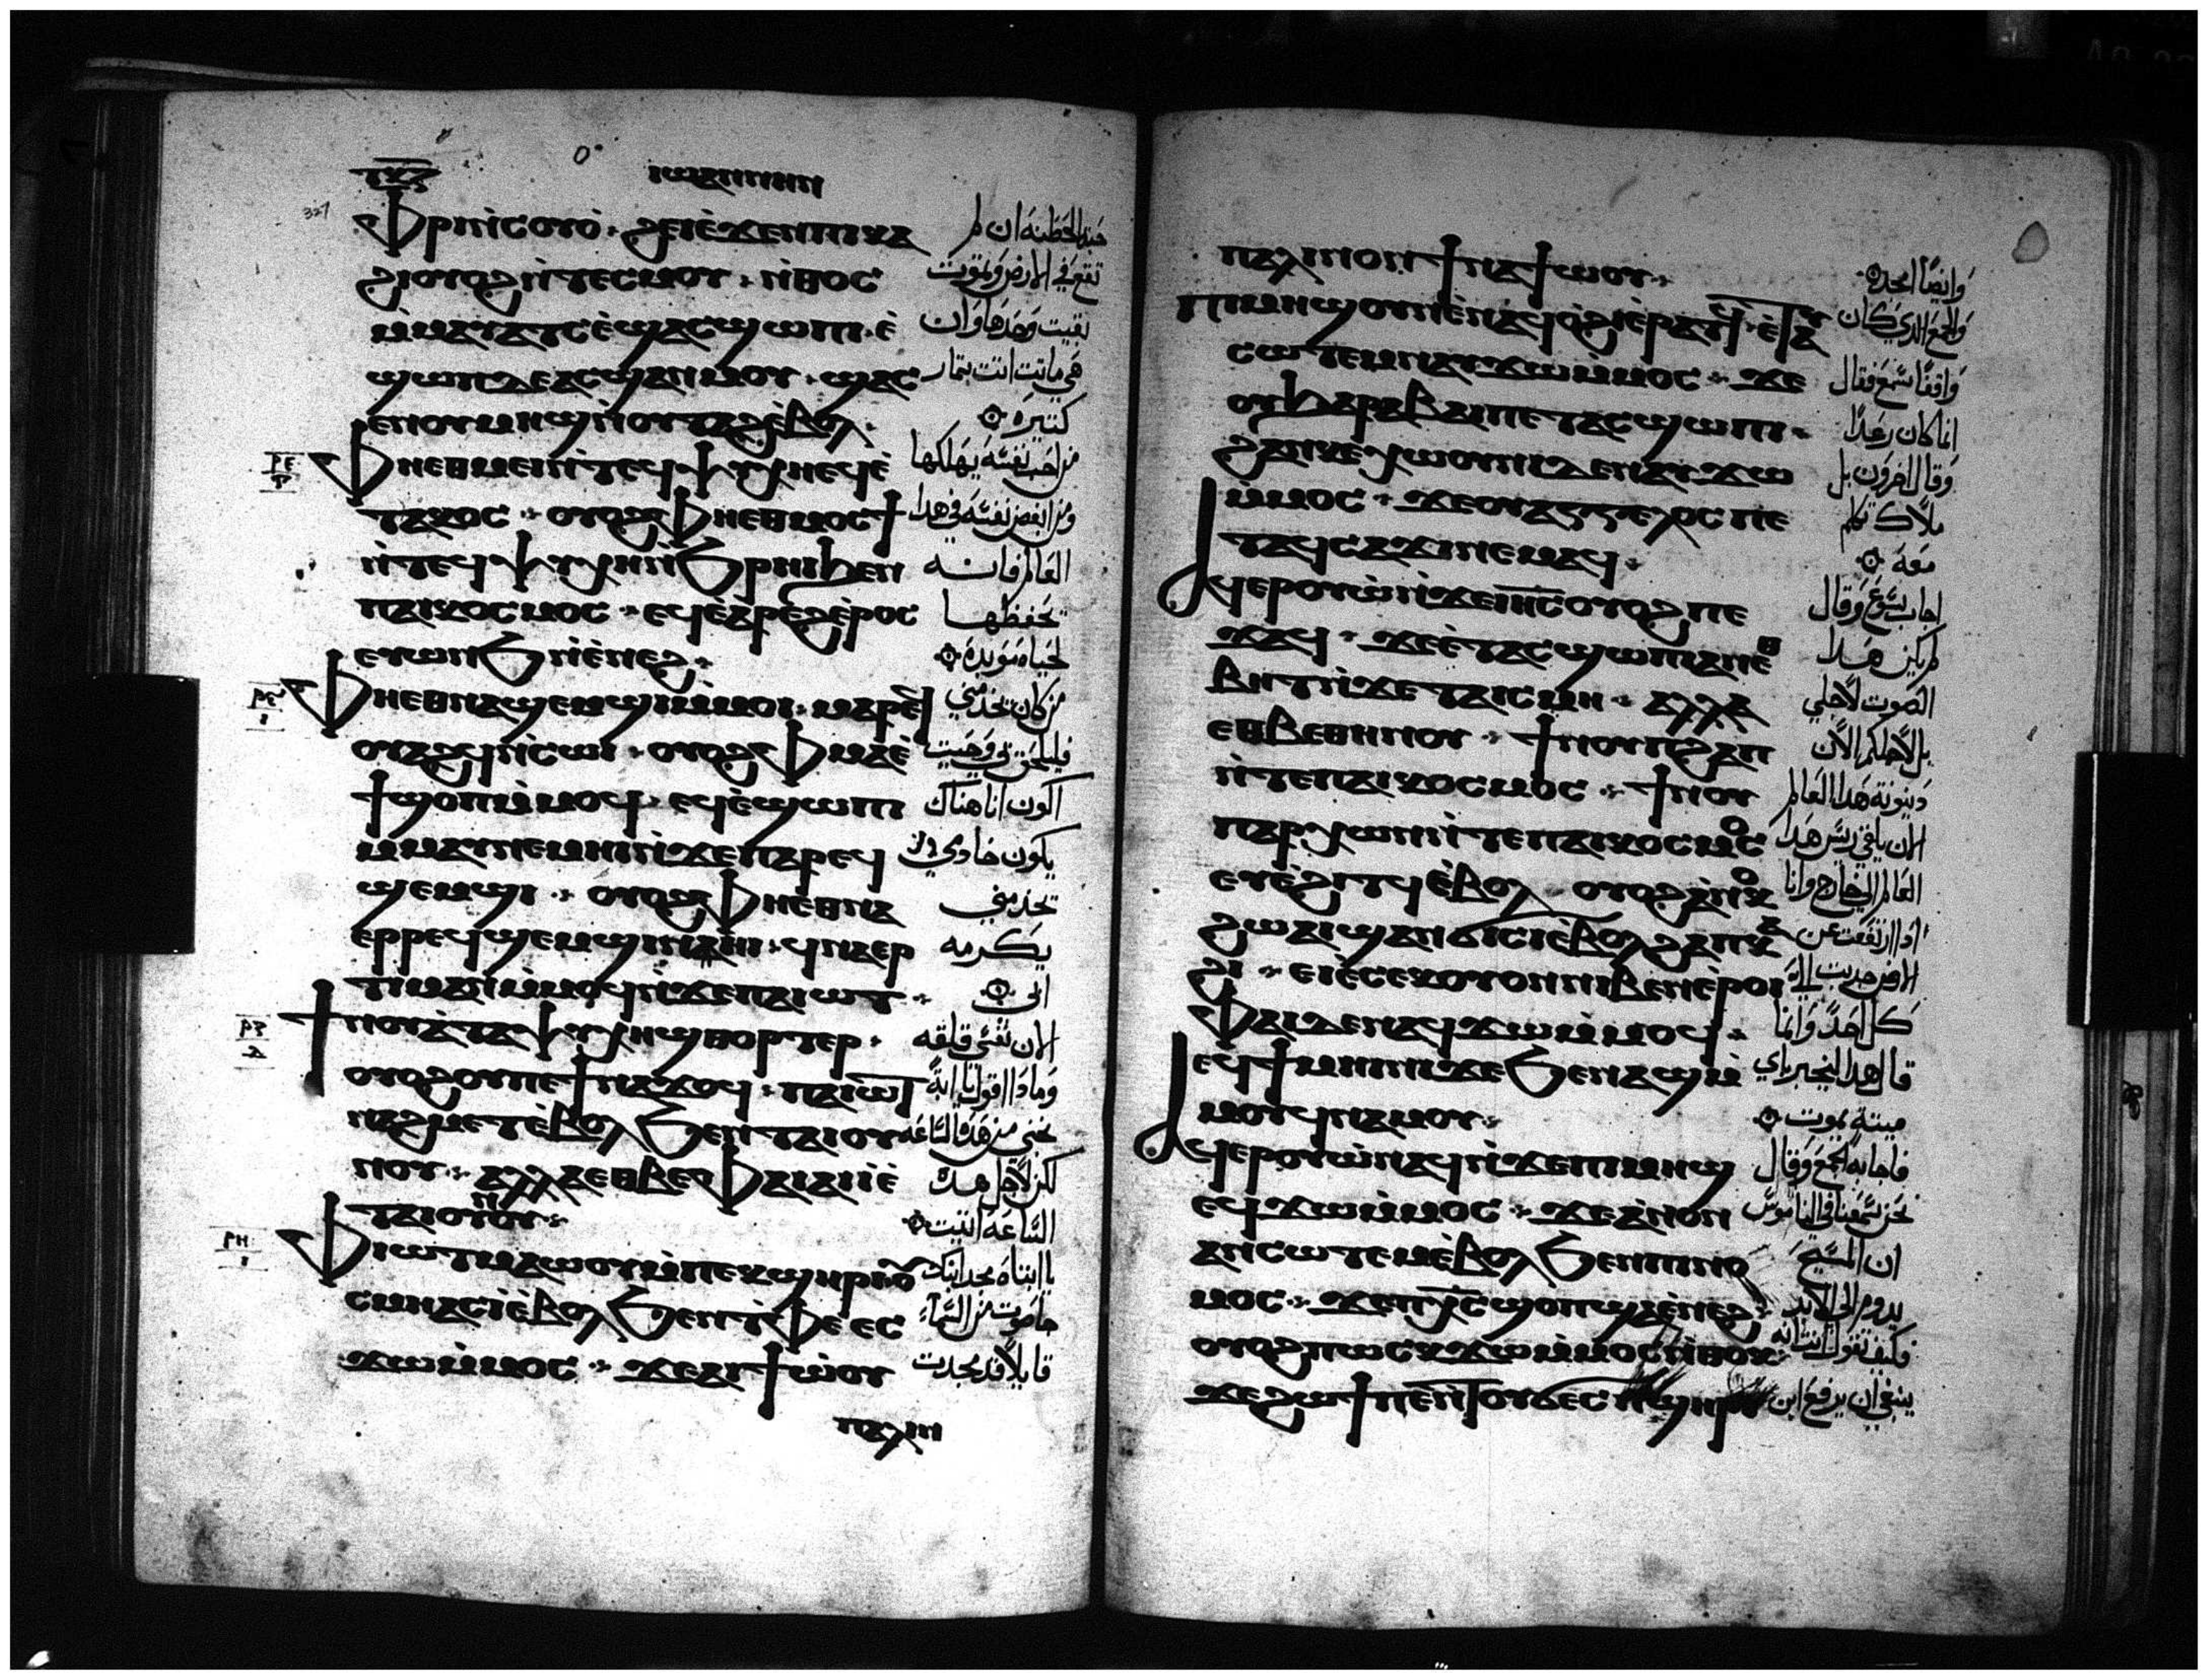 ⲧⲕⲍ
ⲓⲱⲁⲛⲛⲏⲛ
327
ⲫⲣⲏⲓ̀ⲥⲟⲩⲟ̀ · ϩⲉⲓⲉ̀ϫⲉⲛⲡⲓⲕⲁ
ϩⲓⲟⲩⲟϩⲛ̀ⲧⲉⲥⲙⲟⲩ · ⲛ̀ⲑⲟⲥ
ⲙ̀ⲙⲁⲩⲁⲧⲥⲉ̀ϣⲁⲥϣⲱⲡⲓ · ⲉ̀
ϣⲱⲡⲇⲉⲁⲥϣⲁⲛⲙⲟⲩ · ϣⲁⲥ
ⲉⲛⲟⲩⲙⲏϣⲛ̀ⲟⲩⲧⲁϩⲉ̀ⲃⲟⲗ ·
ⲣⲉ
ⲫⲏⲉⲑⲙⲉⲓⲛ̀ⲧⲉϥⲯⲩⲭⲏⲉϥⲉ̀
ⲧⲁⲕⲟⲥ · ⲟⲩⲟϩⲫⲏⲉⲑⲙⲟⲥϯ
ⲛ̀ⲧⲉϥⲯⲩⲭⲏⲛ̀ϧⲣⲏⲓϧⲉⲛ
ⲡⲁⲓⲕⲟⲥⲙⲟⲥ · ⲉϥⲉ̀ⲁ̀ⲣⲉϩⲉ̀ⲣⲟⲥ
ⲉⲩⲱⲛϧⲛ̀ⲉ̀ⲛⲉϩ ·
ⲫⲏⲉⲑⲛⲁϣⲉⲙϣⲓⲙ̀ⲙⲟⲓ · ⲙⲁⲣⲉϥ
ⲟⲩⲁϩϥⲛ̀ⲥⲱⲓ · ⲟⲩⲟϩⲫⲙⲁⲉ̀
ϯϣⲟⲡⲙ̀ⲙⲟϥ · ⲉϥⲉ̀ϣⲱⲡⲓ
ⲙ̀ⲙⲁⲩⲛⲉⲙⲏⲓⲛ̀ϫⲉⲡⲁⲣⲉϥ
ϣⲉⲙϣⲓ · ⲟⲩⲟϩⲫⲏⲉⲑⲛⲁ
ⲉⲣⲣⲉϥϣⲉⲙϣⲓⲛⲁⲛⲏⲓ · ϥⲛⲁⲉⲣ
ⲧⲓⲙⲁⲛⲙ̀ⲙⲟϥⲛ̀ϫⲉⲡⲁⲓⲱⲧ ·
ⲣⲍ
ϯⲛⲟⲩⲁ̀ⲧⲁⲯⲩⲭⲏϣⲑⲟⲣⲧⲉⲣ ·
ⲟⲩⲟϩⲟⲩⲡⲉϯⲛⲁϫⲟϥ · ⲡⲁⲓⲱⲧ
ⲛⲁϩⲙⲉⲧⲉ̀ⲃⲟⲗϧⲉⲛⲧⲁⲓⲟⲩ
ⲛⲟⲩ · ⲁⲗⲗⲁⲉⲑⲃⲉⲫⲁⲓⲁⲓⲓ̀ⲉ̀
ⲧⲁⲓⲟⲩⲛⲟⲩ ·
ⲣⲏ
ⲫⲓⲱⲧⲙⲁⲱⲟⲩⲙ̀ⲡⲉⲕϣⲏⲣⲓ · ⲟⲩ
ⲥⲙⲏⲁⲥⲓ̀ⲉ̀ⲃⲟⲗϧⲉⲛⲧ̀ⲫⲉ ⲉⲥ
ϫⲱⲙ̀ⲙⲟⲥ · ϫⲉⲁⲓϯⲱ̀ⲟⲩ
ⲡⲁⲗⲓⲛ
حبة الحنطة ان لم
تقع في الارض وتموت
بقيت وحدها وان
هي ماتت اتت بثمار
كثيره
من احب نفسه يهلكها
ومن ابغض نفسه في هذا
العالم فانه
يحفظها
لحياه مؤبده
من كان يخدمني
فليلحقني وحيت
اكون انا هناك
يكون خادمي
يخدمني
يكرمه
ابي
الان نفسي قلقه
وماذا اقول يا ابة
نجني من هذه الساعه
لكن لاجل هذه
الساعه اتيت
يا ابتاه مجد ابنك
جا صوت من السماء
قايلا قد مجدت
ⲡⲁⲗⲓⲛⲟⲛϯⲛⲁϯⲱⲟⲩ ·
ⲡⲓⲙⲏϣⲟⲩⲛⲉ̀ⲛⲁϥⲟ̀ϩⲓⲉ̀ⲣⲁⲧϥ · ⲉ̀ⲧⲁⲩ
ⲥⲱⲧⲉⲙⲛⲁⲩϫⲱⲙ̀ⲙⲟⲥ · ϫⲉ
ⲟⲩϧⲁⲣⲁⲃⲁⲓⲡⲉⲧⲁⲥϣⲱⲡⲓ ·
ϩⲁⲛⲕⲉⲭⲱⲟⲩⲛⲓⲇⲉⲛⲁⲩϫⲱ
ⲙ̀ⲙⲟⲥ · ϫⲉⲟⲩⲁⲅⲅⲉⲗⲟⲥⲡⲉ
ⲧⲁϥⲥⲁϫⲓⲛⲉⲙⲁϥ ·
ⲁϥⲉⲣⲟⲩⲱ̀ⲛ̀ϫⲉⲓⲏⲥⲟⲩⲟϩⲡⲉ
ϫⲁϥ · ϫⲉⲉ̀ⲧⲁⲥϣⲱⲡⲓⲁⲛⲉ̀ⲑ
ⲃⲏⲧⲛ̀ϫⲉⲧⲁⲓⲥⲙⲏ · ⲁⲗⲗⲁ
ⲉⲑⲃⲉⲑⲏⲛⲟⲩ · ϯⲛⲟⲩⲡϩⲁⲡ
ⲛ̀ⲧⲉⲡⲁⲓⲕⲟⲥⲙⲟⲥ · ϯⲛⲟⲩ
ⲡⲁⲣⲭⲱⲛⲛ̀ⲧⲉⲡⲁⲓⲕⲟⲥⲙⲟⲥ
ⲉⲩⲉ̀ϩⲓⲧϥⲉ̀ⲃⲟⲗ · ⲟⲩⲟϩⲁ̀ⲛⲟⲕ
ϩⲱⲁⲓϣⲁⲛϭⲓⲥⲓⲉ̀ⲃⲟⲗϩⲁⲡⲕⲁ
ϩⲓ · ⲉⲓⲉ̀ⲥⲉⲕⲟⲩⲟⲛⲛⲓⲃⲉⲛⲉ̀ⲣⲟⲓ
ⲫⲁⲓⲇⲉⲛⲁϥϫⲱⲙ̀ⲙⲟϥ ·
ⲉϥϯⲙⲏⲓⲛⲓϫⲉϧⲉⲛⲁϣⲙ̀
ⲙⲟⲩϥⲛⲁⲙⲟⲩ ·
ⲁϥⲉⲣⲟⲩⲱ̀ⲛⲁϥⲛ̀ϫⲉⲡⲓⲙⲏϣ
ⲉϥϫⲱⲙ̀ⲙⲟⲥ · ϫⲉⲁ̀ⲛⲟⲛ
ⲁⲛⲥⲱⲧⲉⲙⲉ̀ⲃⲟⲗϧⲉⲛⲡⲓⲛⲟ
ⲙⲟⲥ · ϫⲉⲡⲭⲥϣⲟⲡϣⲁⲉ̀ⲛⲉϩ ·
ⲟⲩⲟϩⲡⲱⲥⲕϫⲱⲙ̀ⲙⲟⲥⲛ̀ⲑⲟⲕ ·
ϫⲉϩⲱϯⲡⲉⲛ̀ⲧⲟⲩϭⲉⲥⲡϣⲏⲣⲓ
وايضا امجده
والجمع الذي كان
واقفا سمع فقال
انما كان رعدا
وقال اخرون بل
ملاك كلم
معه
اجاب يسوع وقال
لم يكن هذا
الصوت لاجلي
بل لاجلكم الان
دينونة هذا العالم
الان يلقي ريس هذا
العالم الي خارج وانا
اذا ارتفعت عن
الارض جذبت الي
كل احد وانما
قال هذا ليخبر باي
ميتة يموت
فاجابه الجمع وقال
نحن سمعنا في الناموس
ان المسيح
يدوم الي الابد
فكيف تقول انت انه
ينبغي ان يرفع ابن